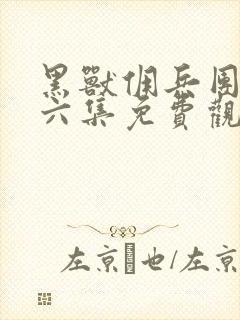 黑獸佣兵團
六集免費觀
左京 也/左京